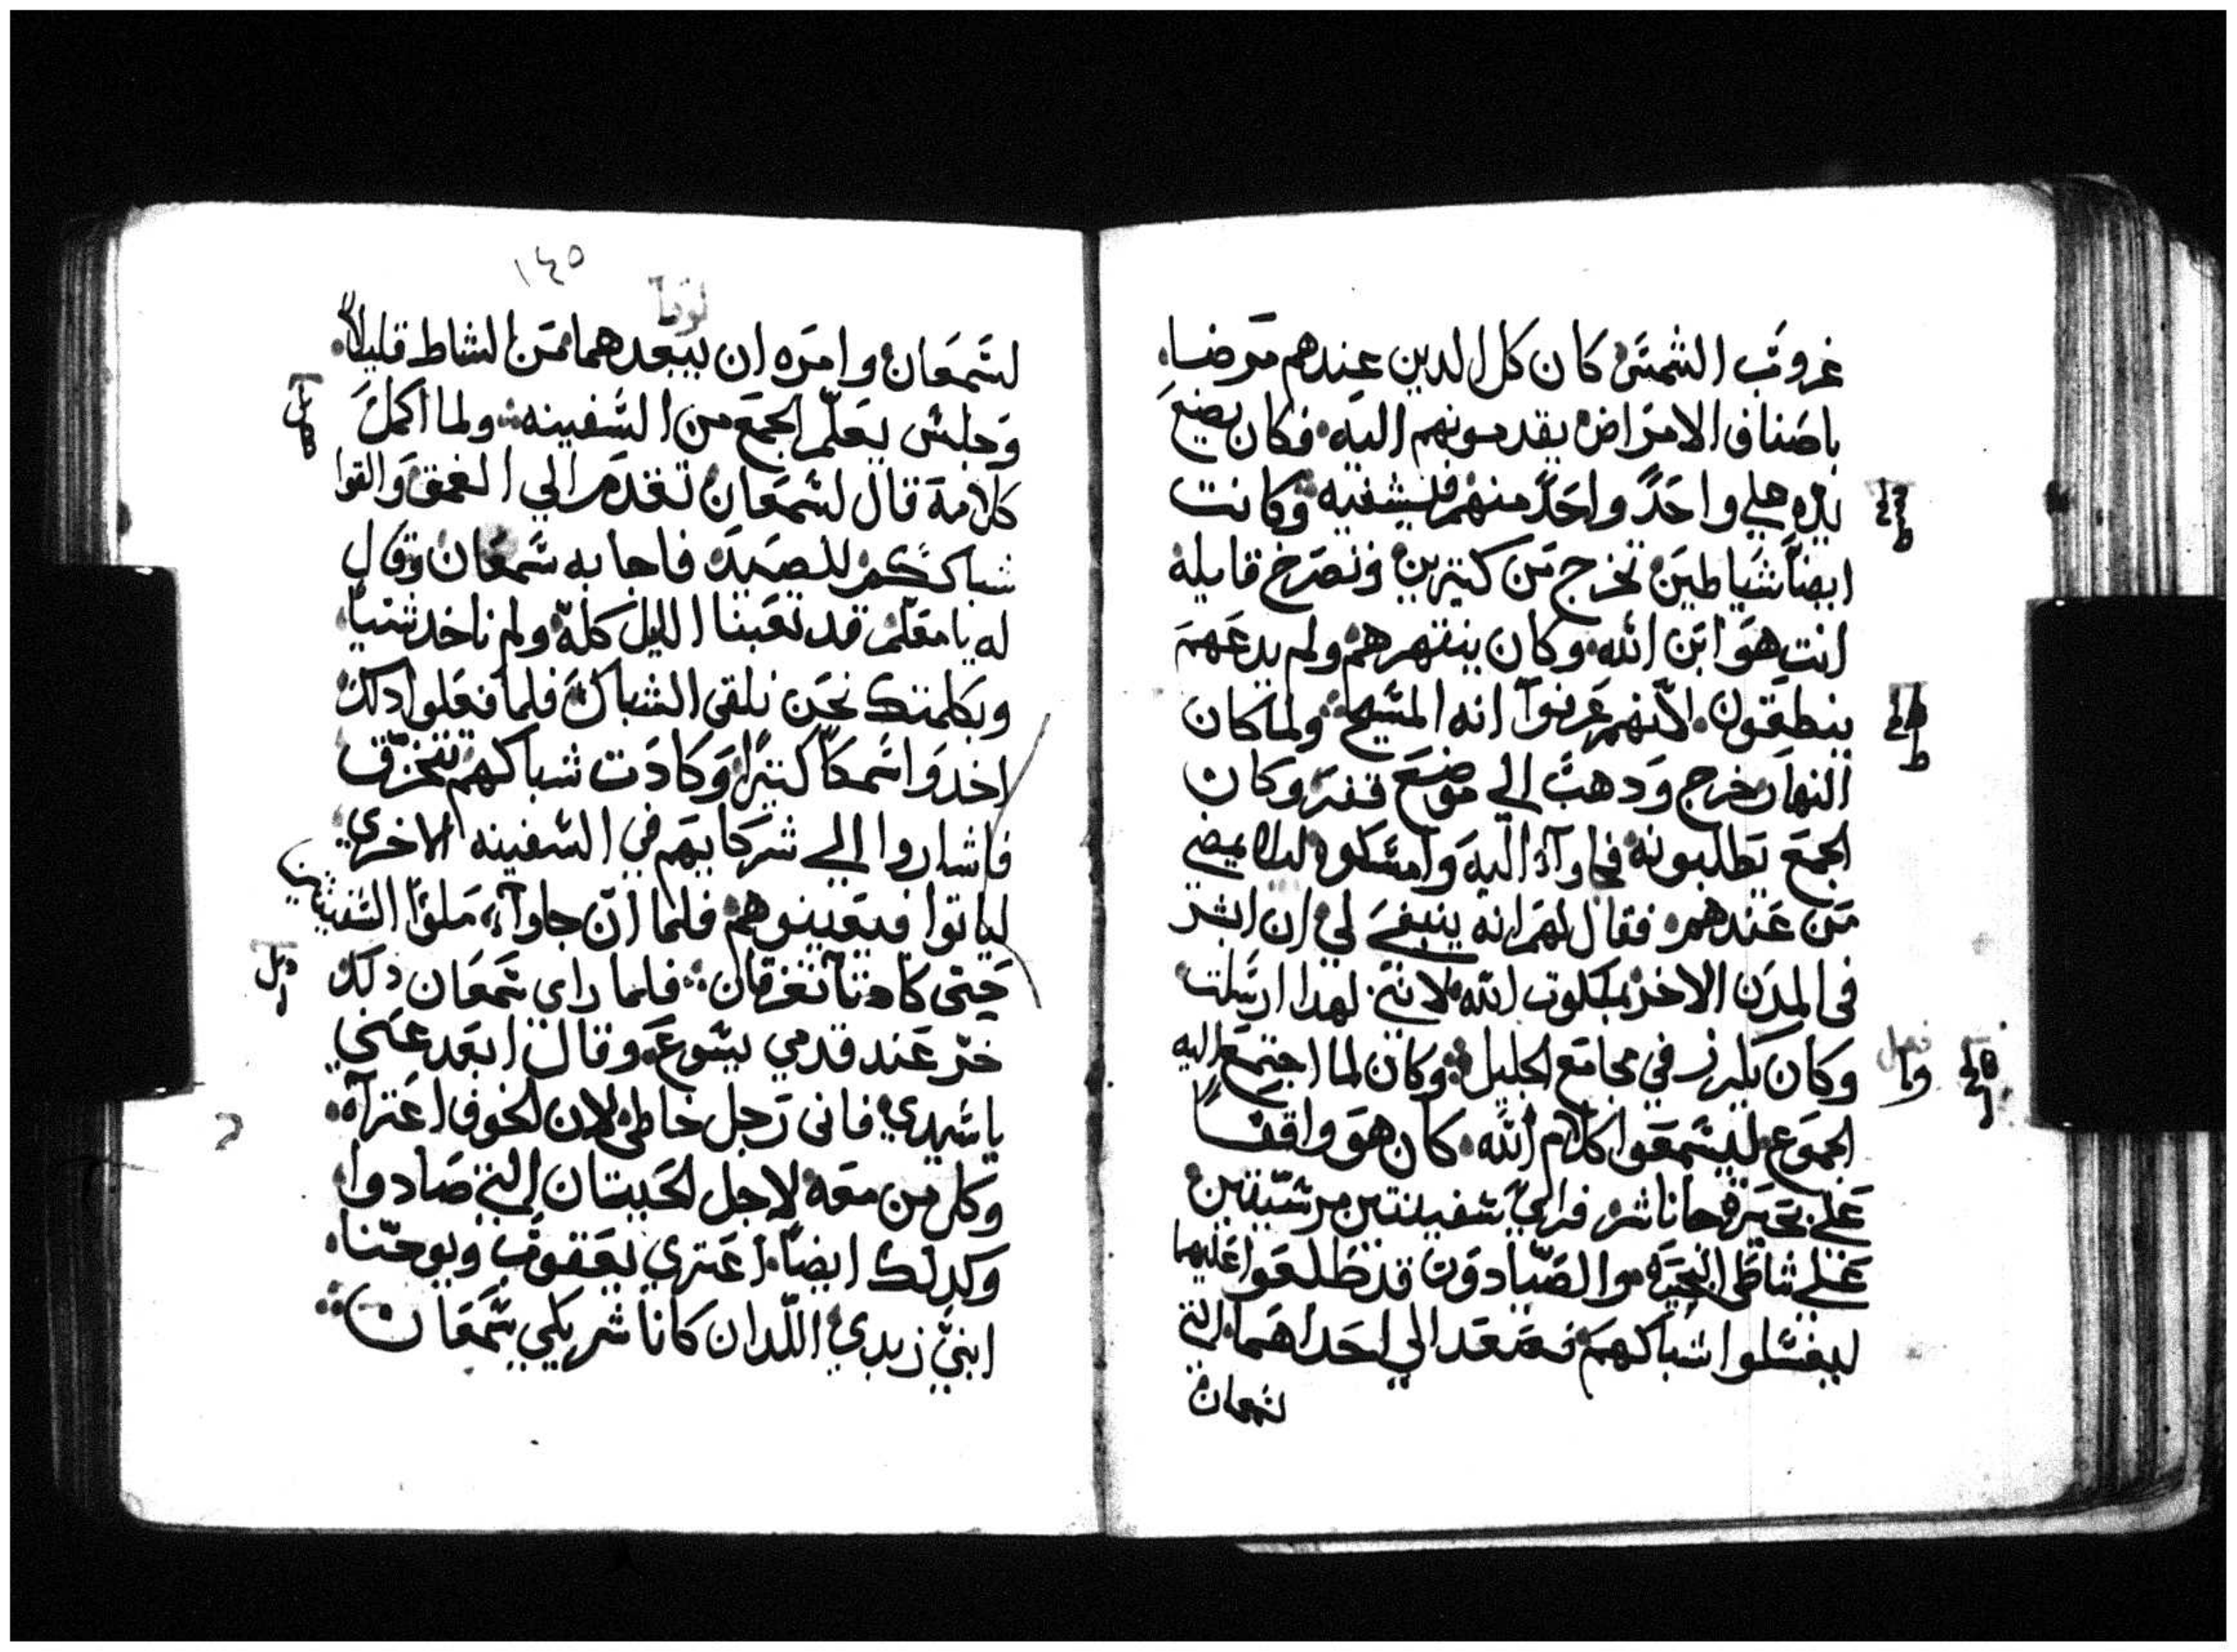 غروب الشمس كان كل الدين عندهم مرضا
باصناف الامراض يقدمونهم اليه فكان يضع
يده علي واحدً واحدً منهم فيشفيه وكانت
ايضاً شياطين تخرج من كتيرين وتصرخ قايله
انت هو ابن الله وكان ينتهرهم ولم يدعهم
ينطقون لانهم عرفوا انه المسيح ولما كان
النهار خرج ودهب الي موضع قفر وكان
الجمع يطلبونه فجاوآ اليه وامسكوه ليلا يمضي
من عندهم فقال لهم انه ينبغي لي ان ابشر
في المدن الاخر بملكوت الله لانني لهدا ارسلت
وكان يكرز في مجامع الجليل وكان لما اجتمع اليه
الجموع ليسمعوا كلام الله كان هو واقفاً
علي بحيرة جاناشر فراي سفينتين مرسيتين
علي شاطي البحيره والصيادون قد طلعوا عليهما
ليغسلوا شباكهم فصعد الي احداهما التي
لسمعان
١٤٥
لوقا
لسمعان وامره ان يبعدهما من الشاط قليلاً
وجلس يعلم الجمع من السفينه ولما اكمل
كلامة قال لسمعان تقدم الي الغمق والقوا
شباككم للصيد فاجابه سمعان وقال
له يا معلم قد تعبنا الليل كله ولم ناخد شياً
وبكلمتك نحن نلقي الشباك فلما فعلوا دلك
اخدوا سمكاً كتيرًا وكادت شباكهم تتخرق
فاشاروا الي شركايهم في السفينه الاخري
لياتوا فيعينوهم فلما ان جاوآ ملوا السفينتين
حتي كادتا تغرقان فلما راي سمعان دلك
خر عند قدمي يسوع وقال ابعد عني
يا سيدي فاني رجل خاطي لان الخوف اعتراه
وكل من معه لاجل الحيتان التي صادوا
وكدلك ايضاً اعتري يعقوب ويوحنا
ابني زبدي اللدان كانا شريكي سمعان